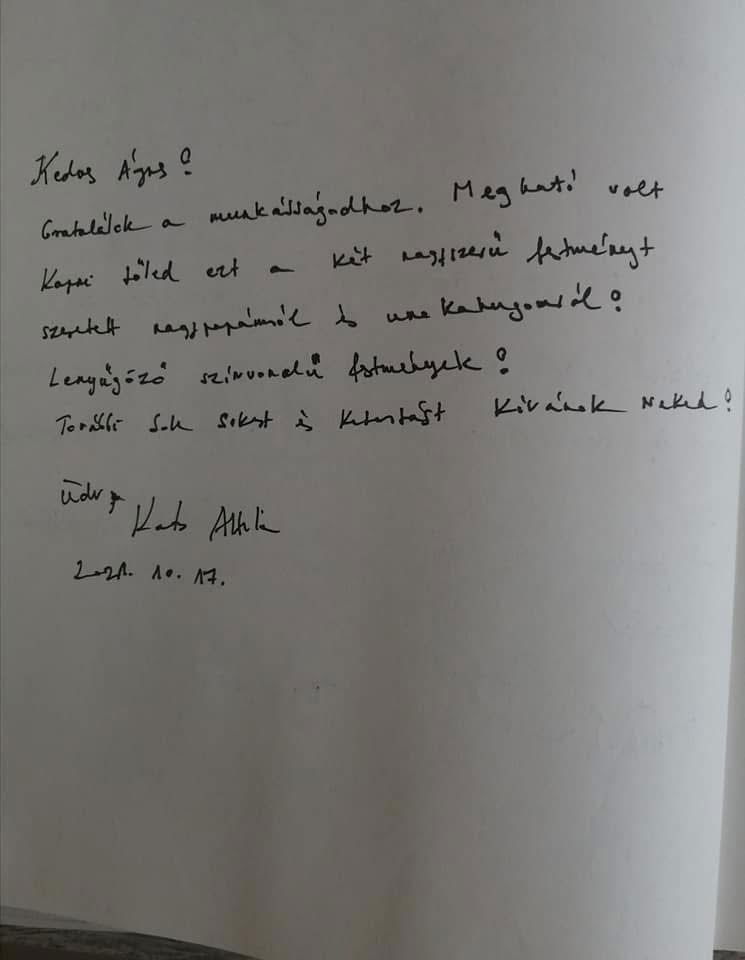 Kedves Ágnes!
Gratulálok a munkásságodhoz. Megható volt
Kapni tőled ezt a két nagyszerű festményt
szeretett nagypapámról és unokahúgomról!
Lenyűgöző színvonalú festmények!
További sok sikert és kitartást kívánok Neked!
Üdv,
Attila
2021. 10. 17.